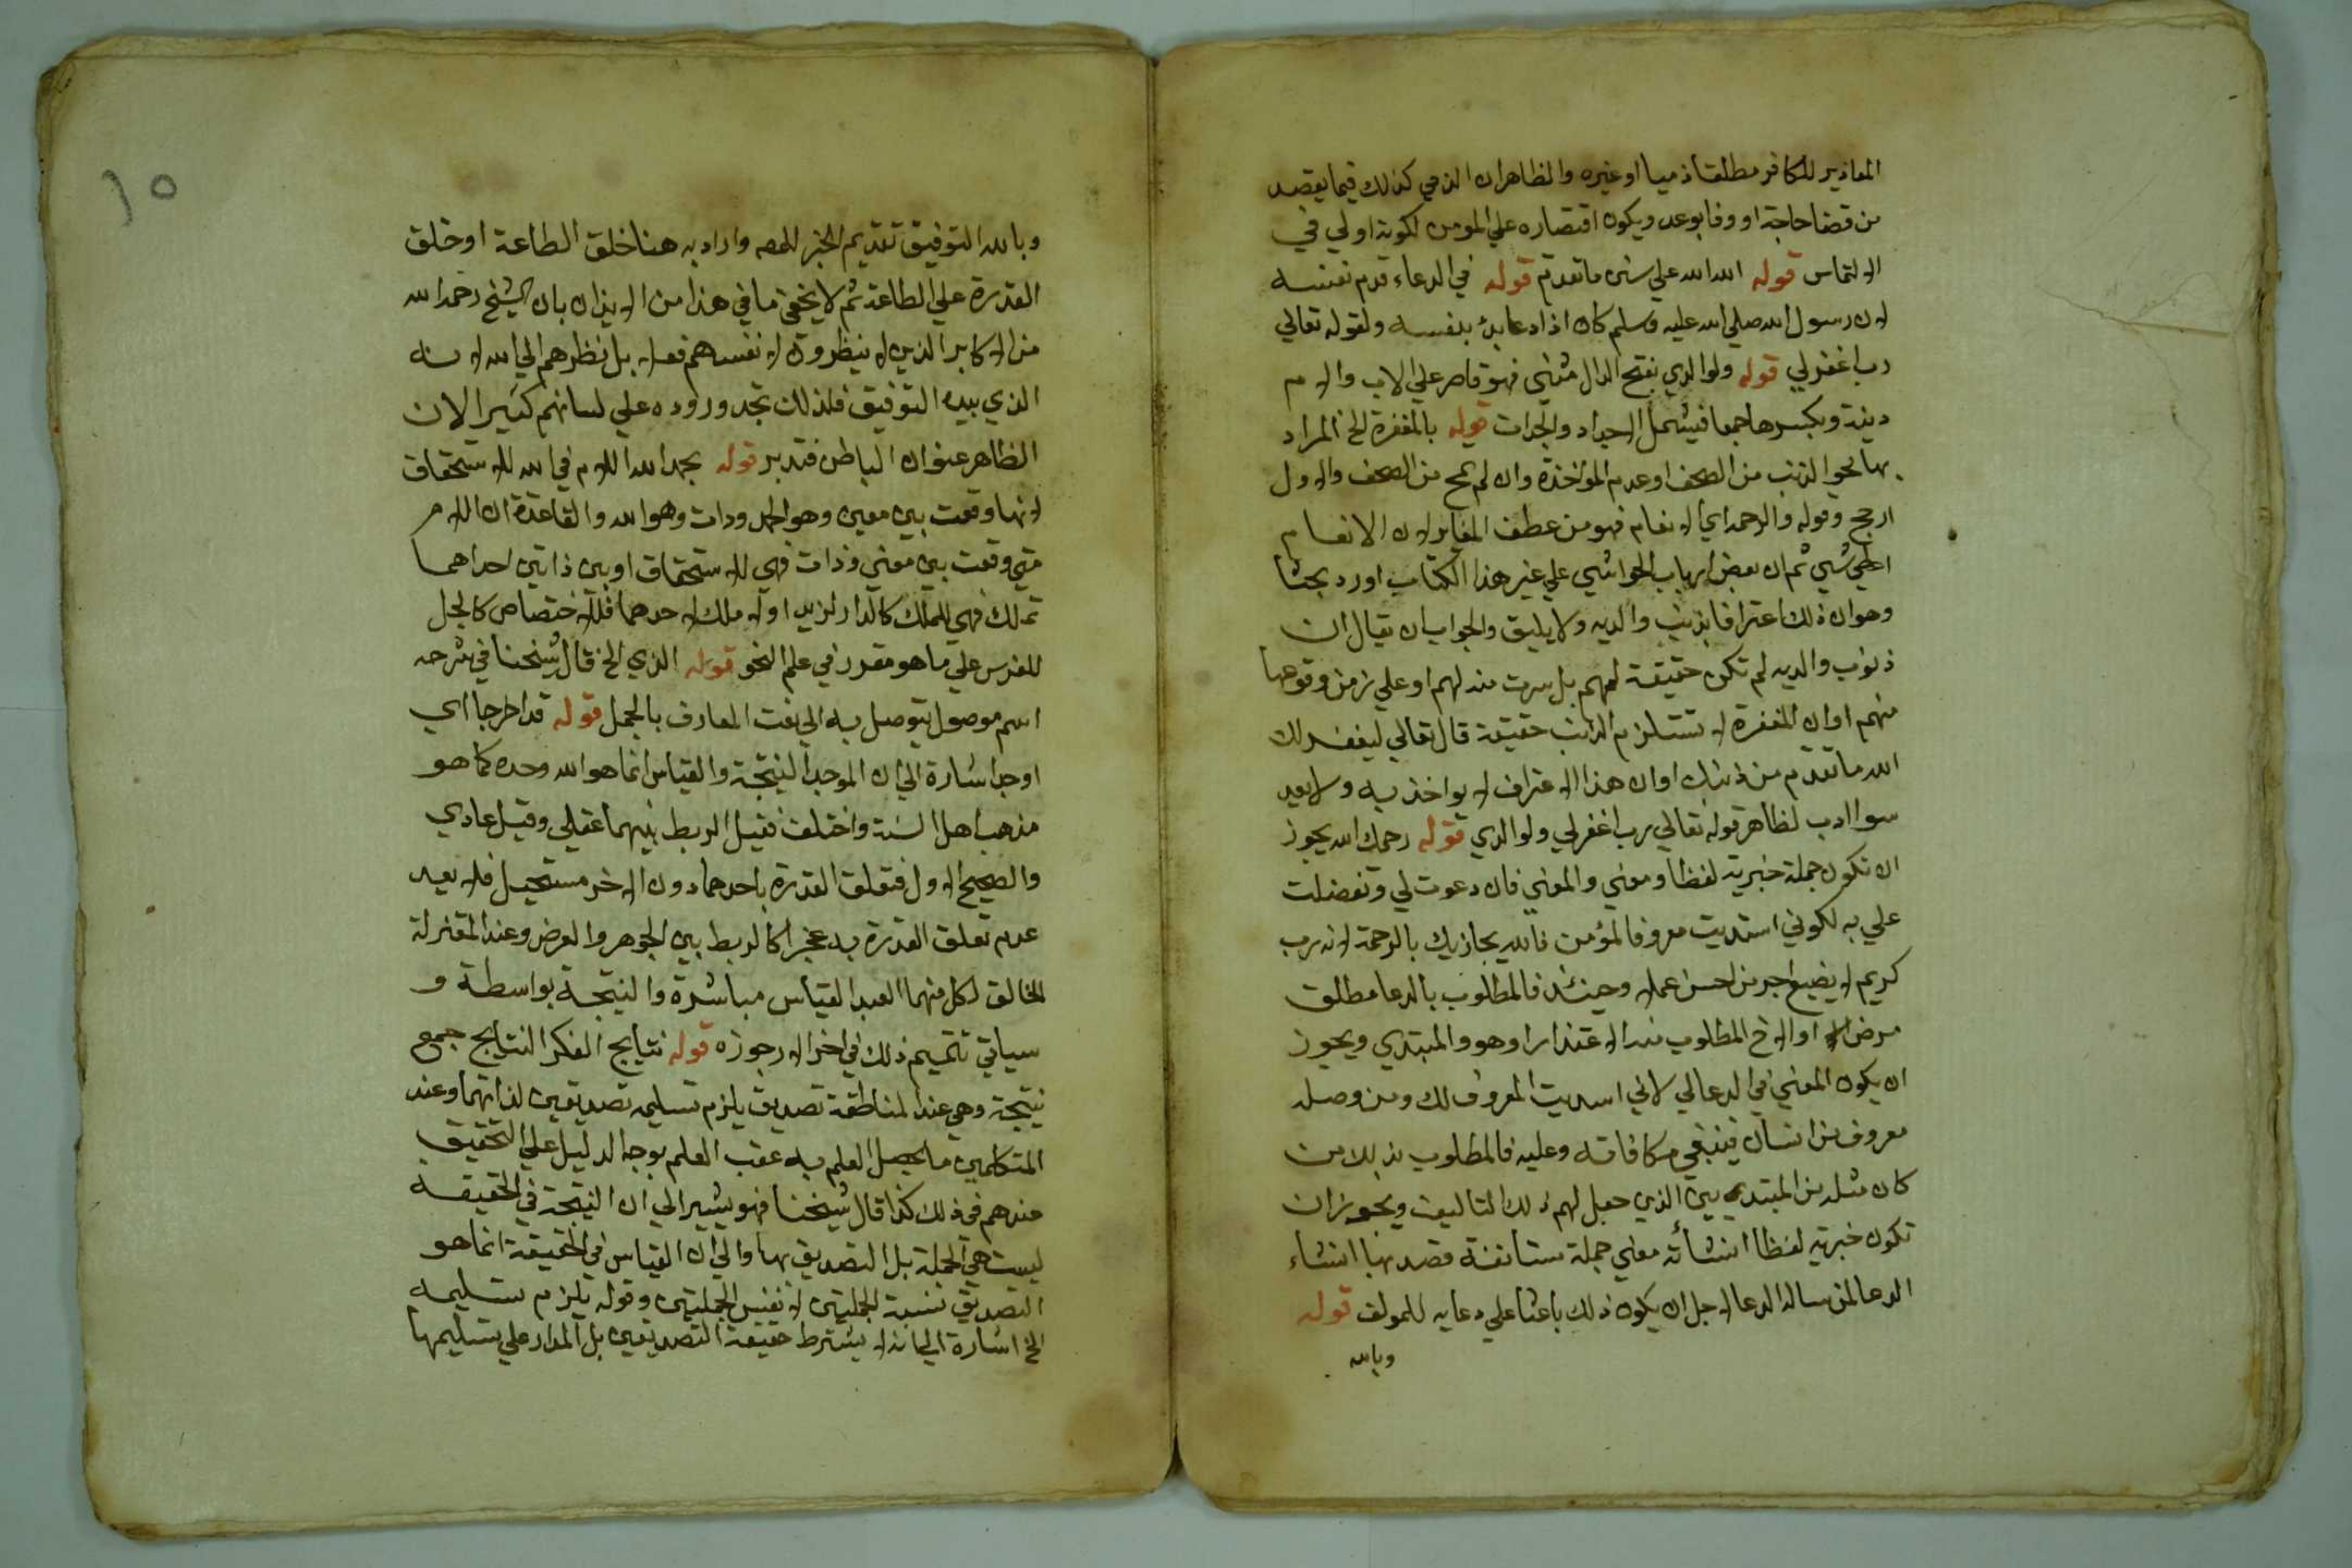 المعاذير للكافر مطلقا ذميا او غيره والظاهر ان الذمي كذلك فيما يقصد
من قضا حاجة او وفا بوعد ويكون اقتصاره علي المومن لكونه اولي في
الالتماس قوله الله الله علي سنن ما تقدم قوله في الدعاء قدم نفسه
لان رسول الله صلي الله عليه وسلم كان اذا دعا بدئ بنفسه ولقوله تعالي
رب اغفر لي قوله ولوالدي بفتح الدال مثني فهو قاصر علي الاب والام
دينة وبكسرها جمعا فيشمل الاجداد والجدات قوله بالمغفرة الخ المراد
بها محو الذنب من الصحف او عدم المواخذة وان لم يمح من الصحف والاول
ارجح وقوله والرحمة اي الانعام فهو من عطف المغاير لان الانعام
اعطي شي ثم ان بعض ارباب الحواشي علي غير هذا الكتاب اورد بحثا
وهو ان ذلك اعترافا بذنب والديه ولا يليق والجواب ان يقال ان
ذنوب والديه لم تكن حقيقة لهم بل سرت منه لهم او علي زمن وقوعها
منهم او ان المغفرة لا تستلزم الذنب حقيقة قال تعالي ليغفر لك
الله ما تقدم من ذنبك او ان هذا الاعتراف لا يواخذ به ولا يعد
سوا ادب لظاهر قوله تعالي رب اغفر لي ولوالدي قوله رحمك الله يجوز
ان تكون جملة خبرية لفظا ومعني والمعني فان دعوت لي وتفضلت
علي به لكوني استديت معروفا لمؤمن فالله يجازيك بالرحمة لانه رب
كريم لا يضيع اجر من احسن عملا وحينئذ فالمطلوب بالدعا مطلق
مرض او الاخ المطلوب منه الاعتذار وهو والمبتدي ويجوز
ان يكون المعني في الدعا لي لاني اسديت المعروف لك ومن وصله
معروف من انسان فينبغي مكافاته وعليه فالمطلوب بذلك من
كان مثله من المبتديين الذي جعل لهم ذلك التاليف ويجوز ان
تكون خبرية لفظا انشائة معني جملة مستانفة قصد بها انشاء
الدعا لمن ساله الدعا لاجل ان يكون ذلك باعثا علي دعايه للمولف قوله
وبالله
١٥
وبالله التوفيق تقديم الخبر للحصر واراد به هنا خلق الطاعة او خلق
القدرة علي الطاعة ثم لا يخفي ما في هذا من الايذان بان الشيخ رحمه الله
من الاكابر الذين لا ينظرون لانفسهم فعلا بل نظرهم الي الله لانه
الذي بيده التوفيق فلذلك تجد وروده علي لسانهم كثيرا لان
الظاهر عنوان الباطن فتدبر قوله الحمد لله اللام في لله للاستحقاق
لانها وقعت بين معين وهو الحمد وذات وهو الله والقاعدة ان اللام
متي وقعت بين معني وذات فهي للاستحقاق او بين ذاتين احداهما
تملك فهي للملك كالدار لزيد او لا ملك لاحدهما فللاختصاص كالجل
للفرس علي ما هو مقرر في علم النحو قوله الذي الخ قال شيخنا في شرحه
اسم موصول يتوصل به الي نعت المعارف بالجمل قوله قد اخرجا اي
اوجد اشارة الي ان الموجد النتيجة والقياس انما هو الله وحده كما هو
مذهب اهل السنة واختلف فقيل الربط بينهما عقلي وقيل عادي
والصحيح الاول فتعلق القدرة باحدهما دون الاخر مستحيل فلا يعد
عدم تعلق القدرة به عجزا كالربط بين الجوهر والعرض وعند المعتزلة
الخالق لكل منهما العبد القياس مباشرة والنتيجة بواسطة و
سياتي تتميم ذلك في اخر الارجوزه قوله نتايج الفكر النتايج جمع
نتيجة وهي عند المناطقة تصديق يلزم تسليم تصديقين لذاتهما وعند
المتكلمين ما يحصل العلم به عقب العلم بوجه الدليل علي التحقيق
عندهم في ذلك كذا قال شيخنا فهو يشير الي ان النتيجة في الحقيقة
ليست هي الجملة بل التصديق بها والي ان القياس في الحقيقة انما هو
التصديق بنسبة الجملتين لا نفس الجملتين وقوله يلزم تسليمه
الخ اشارة الي انه لا يشترط حقيقة التصديقين بل المدار علي تسليمها